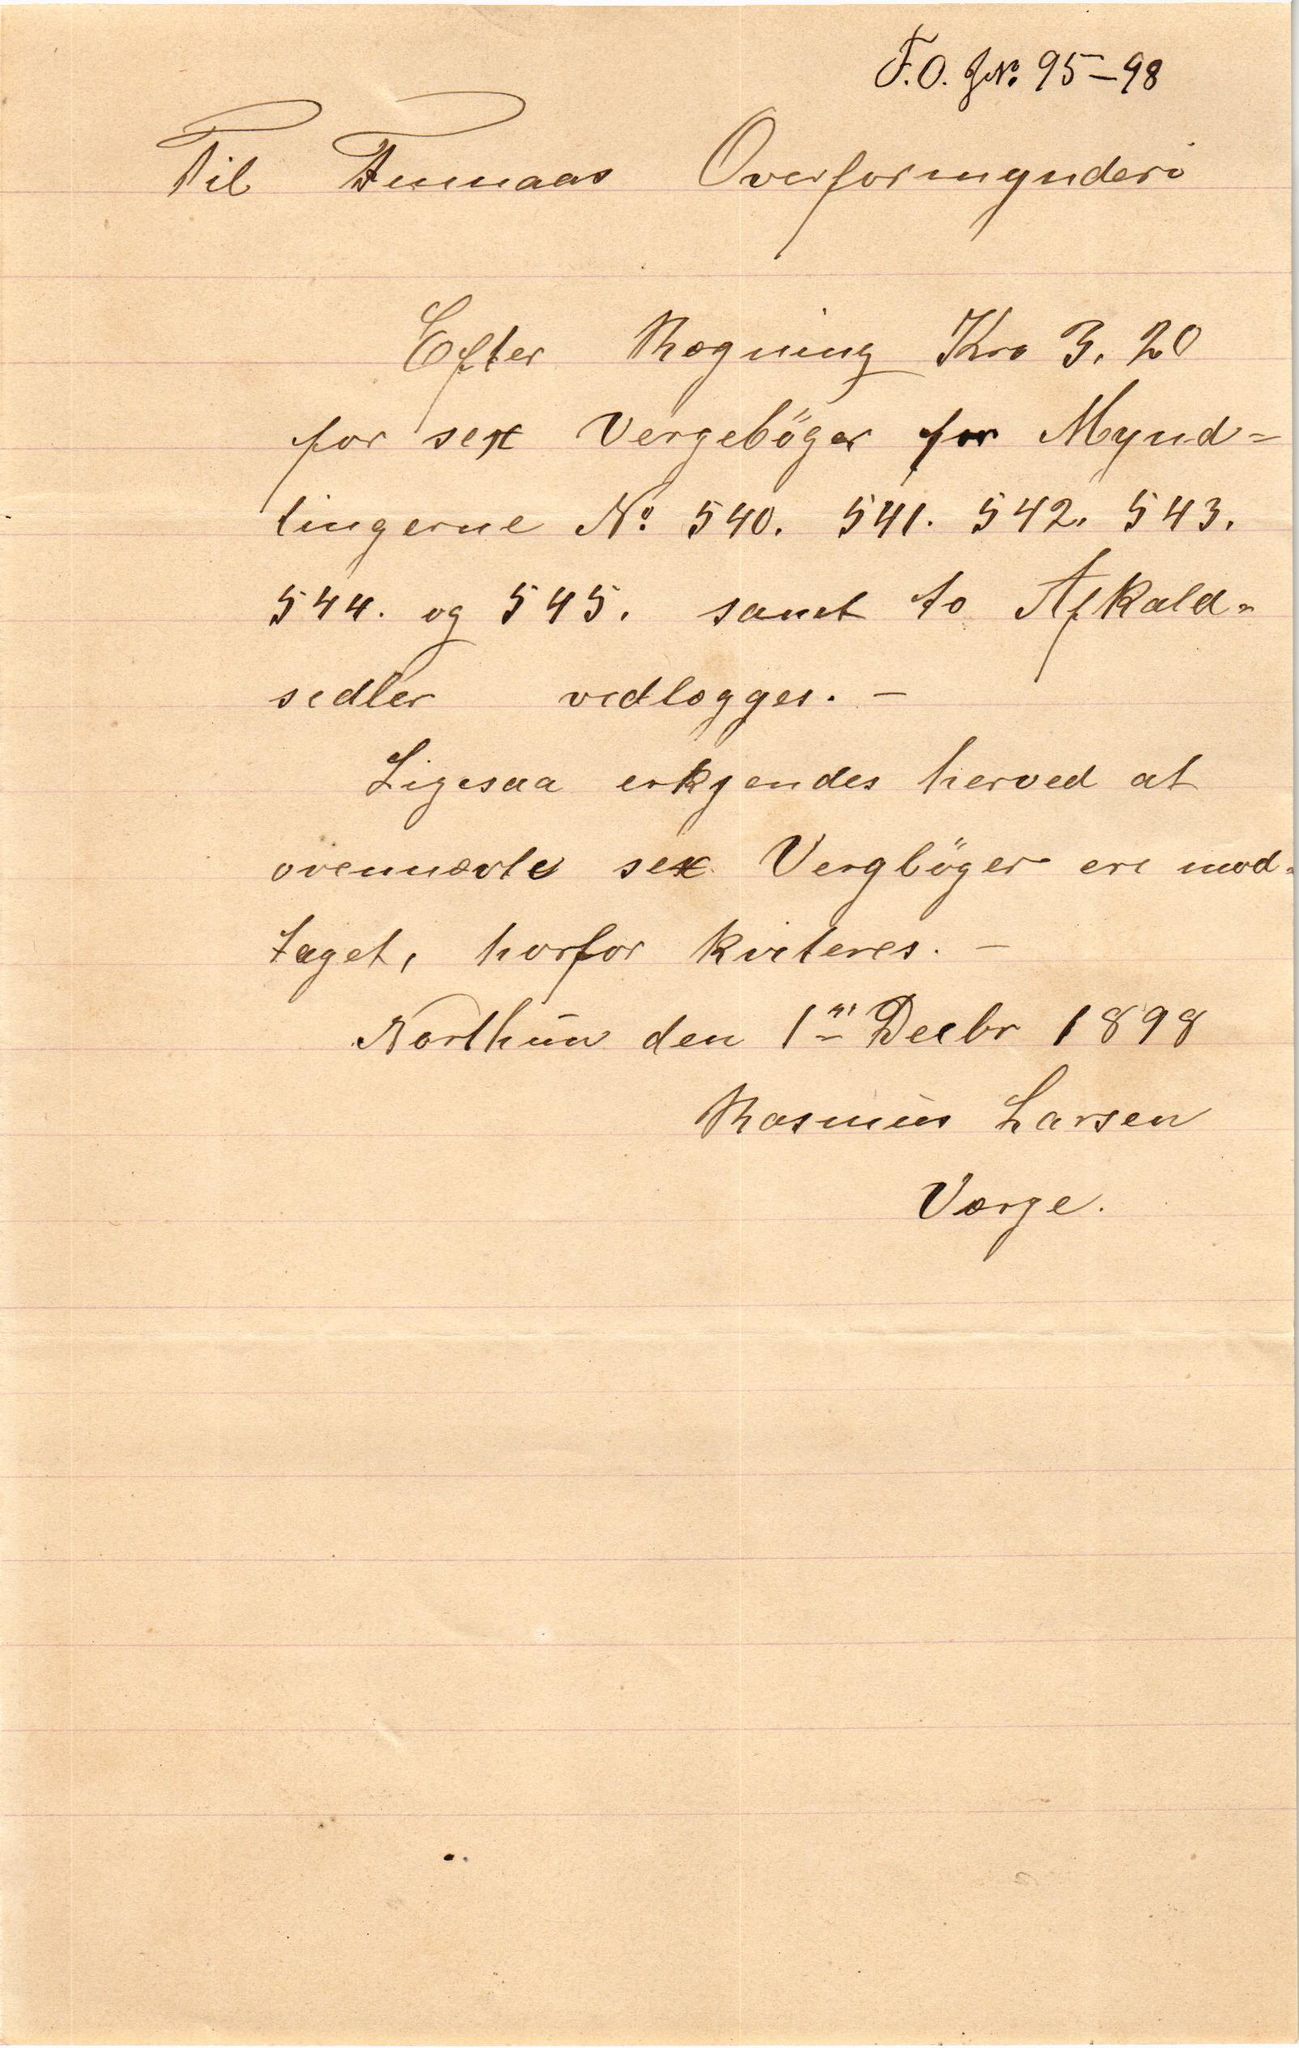 F.O. JN: 95–98
Til Finnaas Overformynderi
Efter Regning Kro 3,20
for sex Vergebøger for Mynd=
lingerne No 540. 541. 542. 543.
544. og 545. samt to Afkald=
sedler vedlægges. —
Ligesaa erkjendes herved at
ovennævte sex Vergbøger ere mod=
taget, horfor kviteres. —
Northun den 1ni Decbr 1898
Rasmus Larsen
Værge.